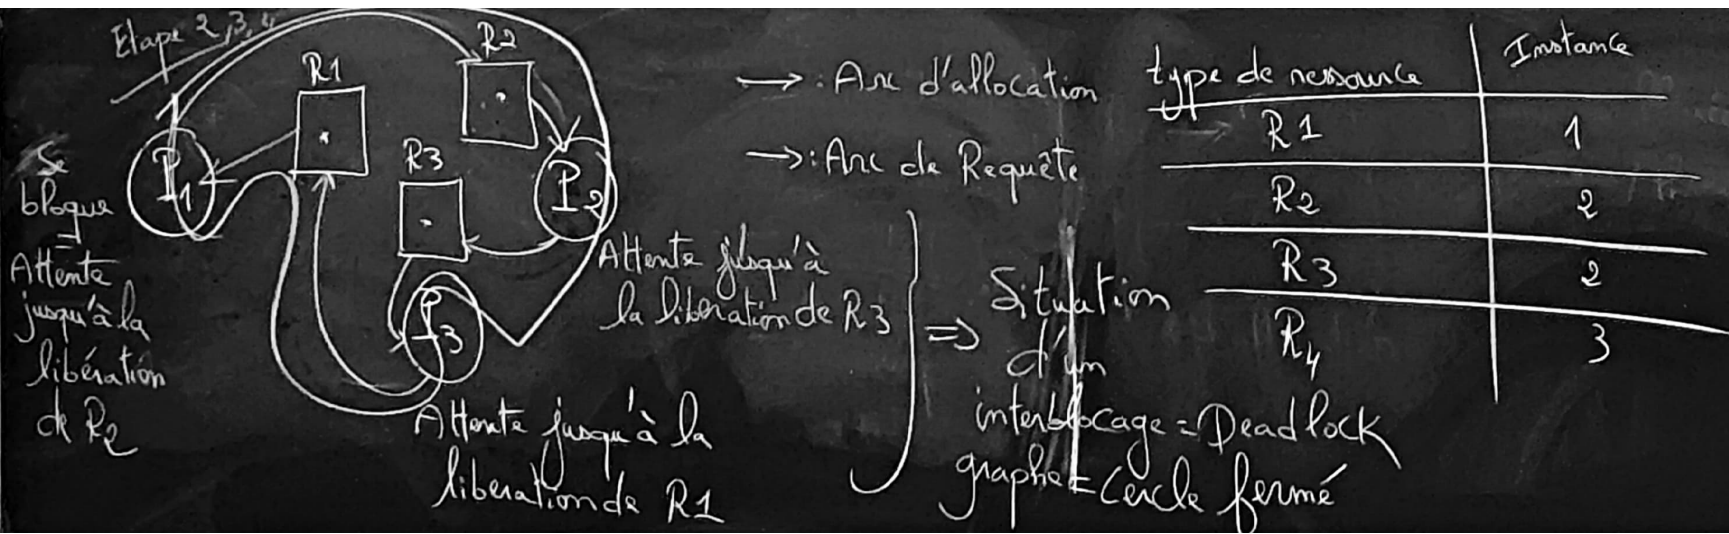 Etape 2,3,4
R1
R2
R3
P1
P2
P3
Se
bloque
Attente
jusqu'à la
libération
de R2
Attente jusqu'à
la libération de R3
Attente jusqu'à la
libération de R1
→ : Arc d'allocation
→ : Arc de Requête
⇒ Situation
d'un
interblocage = Deadlock
graphe = Cercle fermé
type de ressource Instance
R1 1
R2 2
R3 2
R4 3